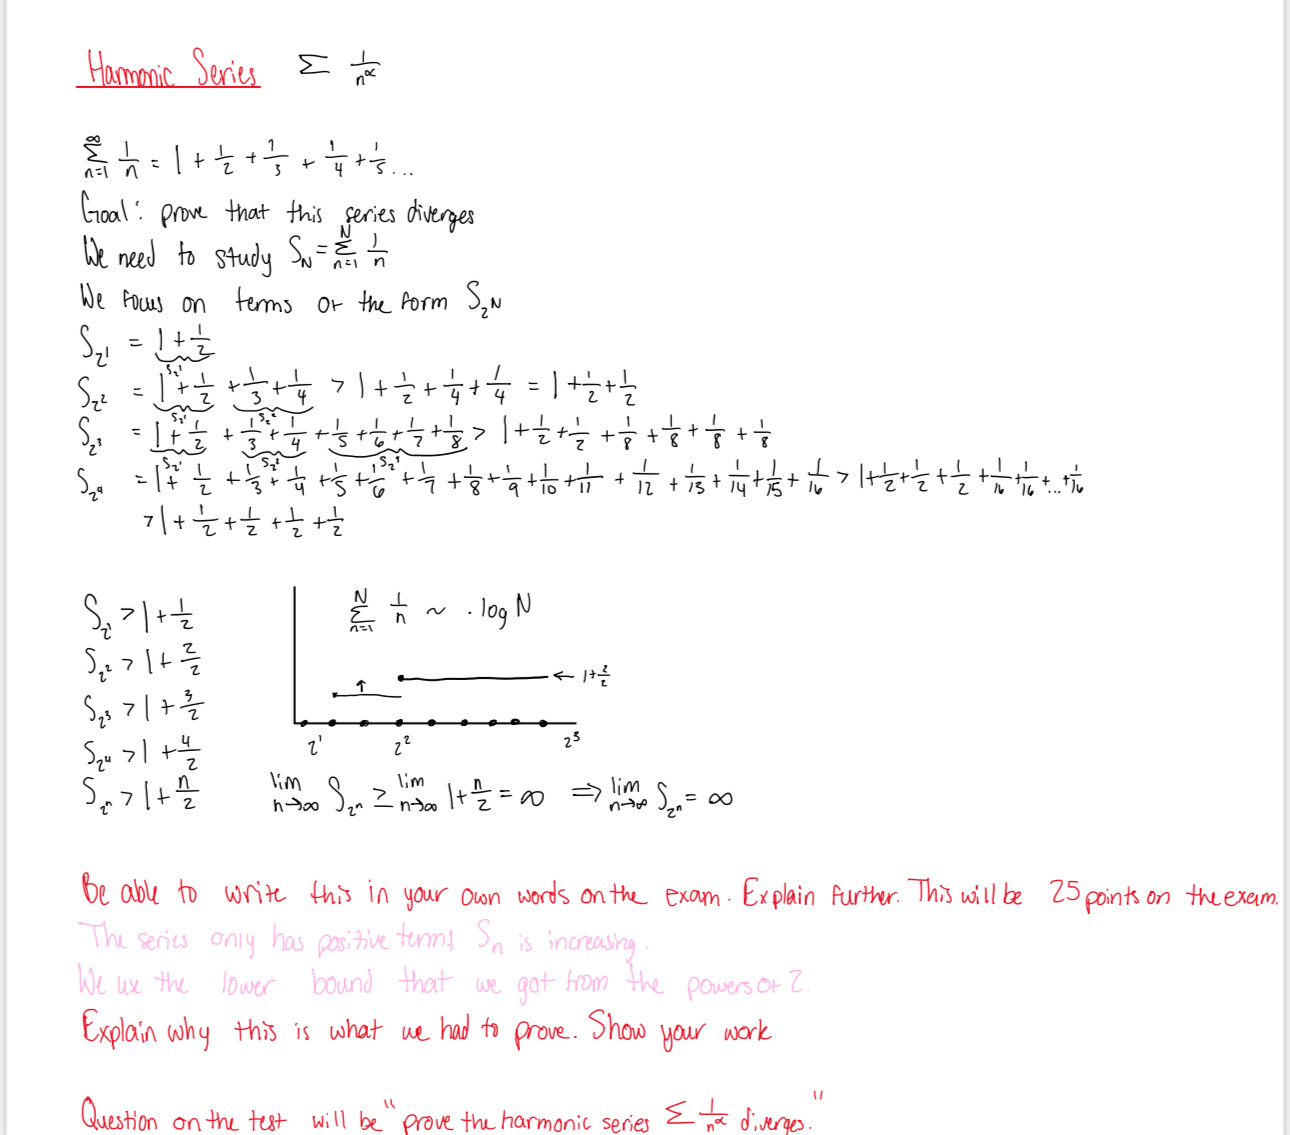 Harmonic Series Σ 1/n^α
∞ Σ n=1 1/n = 1 + 1/2 + 1/3 + 1/4 + 1/5 ...
Goal: prove that this series diverges
We need to study S_N = N Σ n=1 1/n
We focus on terms of the form S_2^N
S_2^1 = 1 + 1/2
S_2^1 S_2^2
S_2^2 = 1 + 1/2 + 1/3 + 1/4 > 1 + 1/2 + 1/4 + 1/4 = 1 + 1/2 + 1/2
S_2^1 S_2^2
S_2^3 = 1 + 1/2 + 1/3 + 1/4 + 1/5 + 1/6 + 1/7 + 1/8 > 1 + 1/2 + 1/2 + 1/8 + 1/8 + 1/8 + 1/8
S_2^1 S_2^2 S_2^3
S_2^4 = 1 + 1/2 + 1/3 + 1/4 + 1/5 + 1/6 + 1/7 + 1/8 + 1/9 + 1/10 + 1/11 + 1/12 + 1/13 + 1/14 + 1/15 + 1/16 > 1 + 1/2 + 1/2 + 1/2 + 1/16 + 1/16 + ... + 1/16
> 1 + 1/2 + 1/2 + 1/2 + 1/2
S_2^1 > 1 + 1/2
S_2^2 > 1 + 2/2
S_2^3 > 1 + 3/2
S_2^4 > 1 + 4/2
S_2^n > 1 + n/2
N Σ n=1 1/n ~ . log N
← 1 + 2/2
2^1 2^2 2^3
lim n→∞ S_2^n ≥ lim n→∞ 1 + n/2 = ∞ ⇒ lim n→∞ S_2^n = ∞
Be able to write this in your own words on the exam. Explain further. This will be 25 points on the exam.
The series only has positive terms, S_n is increasing.
We use the lower bound that we got from the powers of 2.
Explain why this is what we had to prove. Show your work
Question on the test will be "prove the harmonic series Σ 1/n^α diverges."